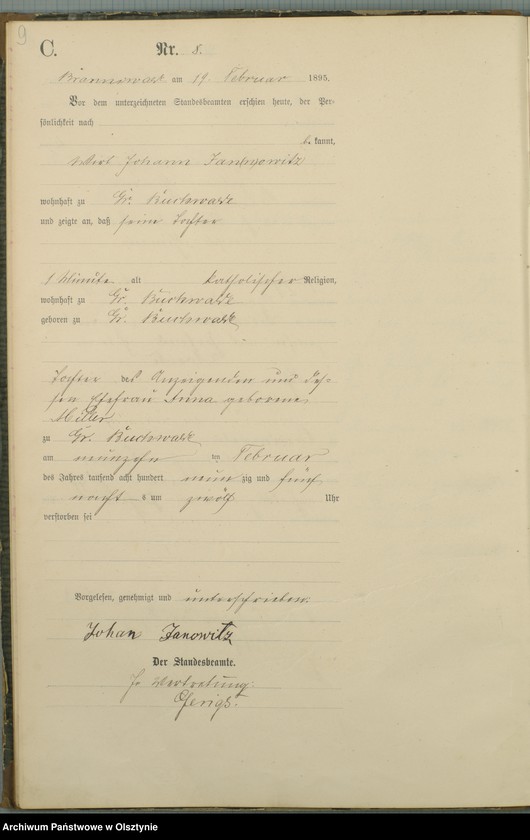 9
C.
Nr. 8.
Braunswalde am 19. Februar 1895.
Vor dem unterzeichneten Standesbeamten erschien heute, der Per-
sönlichkeit nach
be kannt,
Johann Jannowitz
wohnhaft zu Gr. Buchwalde
und zeigte an, daß seine Tochter
1 Minute alt katholischer Religion,
wohnhaft zu Gr. Buchwalde
geboren zu Gr. Buchwalde
Tochter des Anzeigenden und des-
sen Ehefrau Anna geborene
zu Gr. Buchwalde
am neunzehn ten Februar
des Jahres tausend acht hundert neun zig und fünf
nacht s um zwölf Uhr
verstorben sei
Vorgelesen, genehmigt und unterschrieben.
Johan Janowitz
Der Standesbeamte.
In Vertretung.
Archiwum Państwowe w Olsztynie